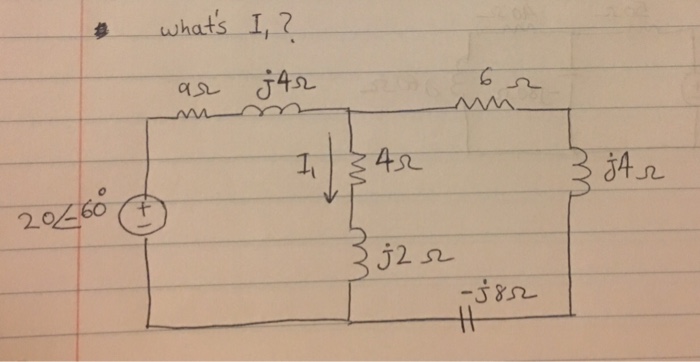 what's I₁ ?
9Ω j4Ω 6 Ω
I₁ 4Ω j4 Ω
20∠60° + −
j2 Ω
-j8Ω